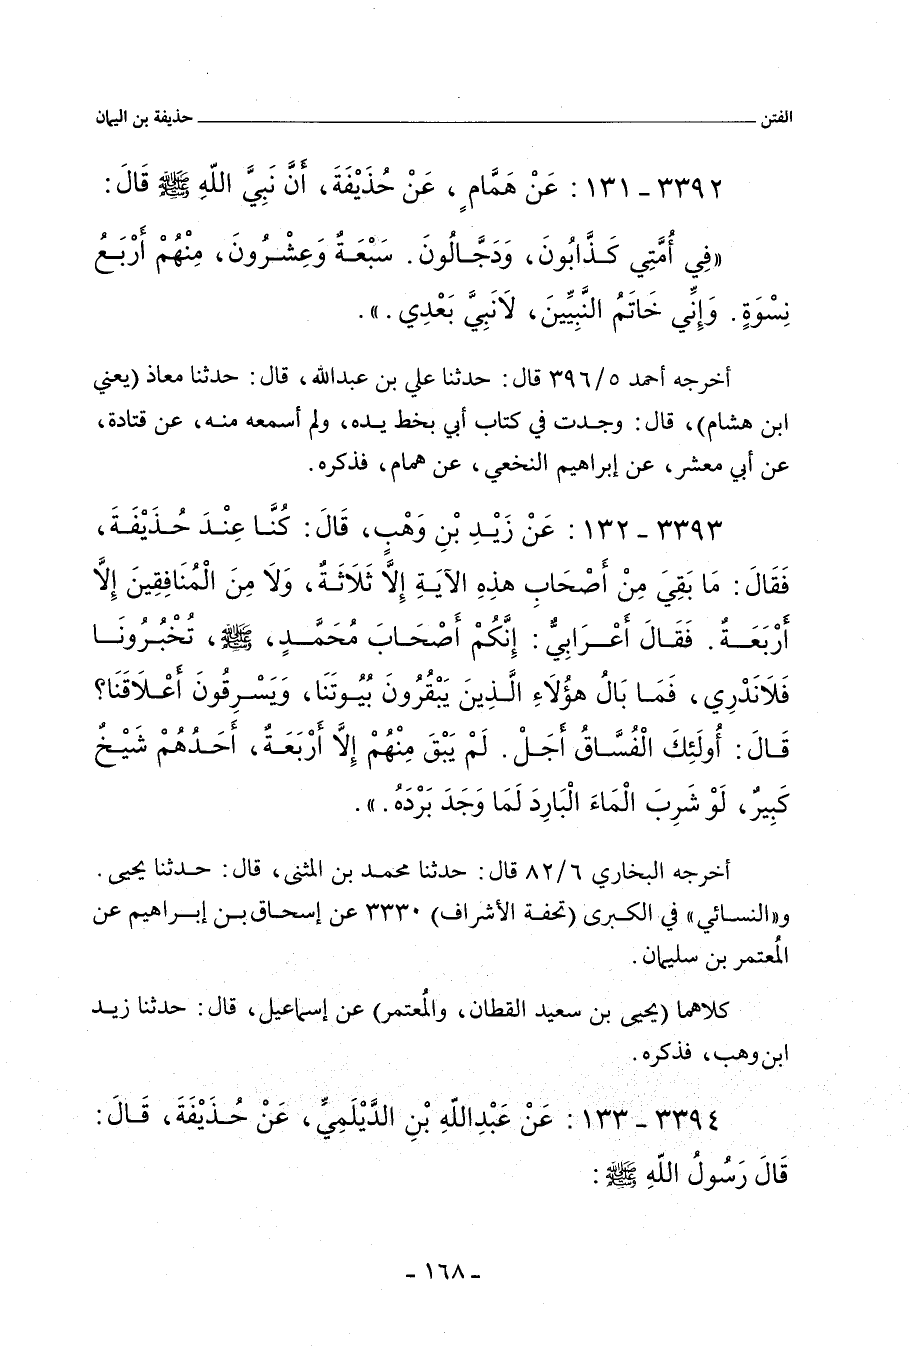 الفتن ـــــ حذيفة بن اليمان
٣٣٩٢ - ١٣١ : عَنْ هَمَّامٍ ، عَنْ حُذَيْفَةَ، أَنَّ نَبِيَّ اللّهِ ﷺ قَالَ :
«فِي أُمَّتِي كَذَّابُونَ، وَدَجَّالُونَ. سَبْعَةٌ وَعِشْرُونَ، مِنْهُمْ أَرْبَعُ
نِسْوَةٍ. وَإِنِّي خَاتَمُ النَّبِيِّينَ، لَانَبِيَّ بَعْدِي .» .
أخرجه أحمد ٣٩٦/٥ قال : حدثنا علي بن عبدالله ، قال : حدثنا معاذ (يعني
ابن هشام)، قال : وجدت في كتاب أبي بخط يده، ولم أسمعه منه، عن قتادة،
عن أبي معشر، عن إبراهيم النخعي، عن همام، فذكره.
٣٣٩٣ - ١٣٢ : عَنْ زَيْدِ بْنِ وَهْبٍ، قَالَ : كُنَّا عِنْدَ حُذَيْفَةَ،
فَقَالَ : مَا بَقِيَ مِنْ أَصْحَابِ هذِهِ الآيَةِ إِلَّا ثَلَاثَةٌ، وَلَا مِنَ الْمُنَافِقِينَ إِلَّا
أَرْبَعَةٌ. فَقَالَ أَعْرَابِيٌّ : إِنَّكُمْ أَصْحَابَ مُحَمَّدٍ، ﷺ، تُخْبِرُونَا
فَلَانَدْرِي، فَمَا بَالُ هؤُلَاءِ الَّذِينَ يَبْقُرُونَ بُيُوتَنَا، وَيَسْرِقُونَ أَعْلَاقَنَا؟
قَالَ : أُولَئِكَ الْفُسَّاقُ أَجَلْ. لَمْ يَبْقَ مِنْهُمْ إِلَّا أَرْبَعَةٌ، أَحَدُهُمْ شَيْخٌ
كَبِيرٌ، لَوْ شَرِبَ الْمَاءَ الْبَارِدَ لَمَا وَجَدَ بَرْدَهُ.» .
أخرجه البخاري ٨٢/٦ قال : حدثنا محمد بن المثنى، قال : حدثنا يحيى .
و«النسائي» في الكبرى (تحفة الأشراف) ٣٣٣٠ عن إسحاق بن إبراهيم عن
المُعتمر بن سليمان .
كلاهما (يحيى بن سعيد القطان، والمُعتمر) عن إسماعيل، قال : حدثنا زيد
ابن وهب، فذكره .
٣٣٩٤ - ١٣٣ : عَنْ عَبْدِاللّهِ بْنِ الدَّيْلَمِيِّ، عَنْ حُذَيْفَةَ، قَالَ :
قَالَ رَسُولُ اللّهِ ﷺ :
- ١٦٨ -